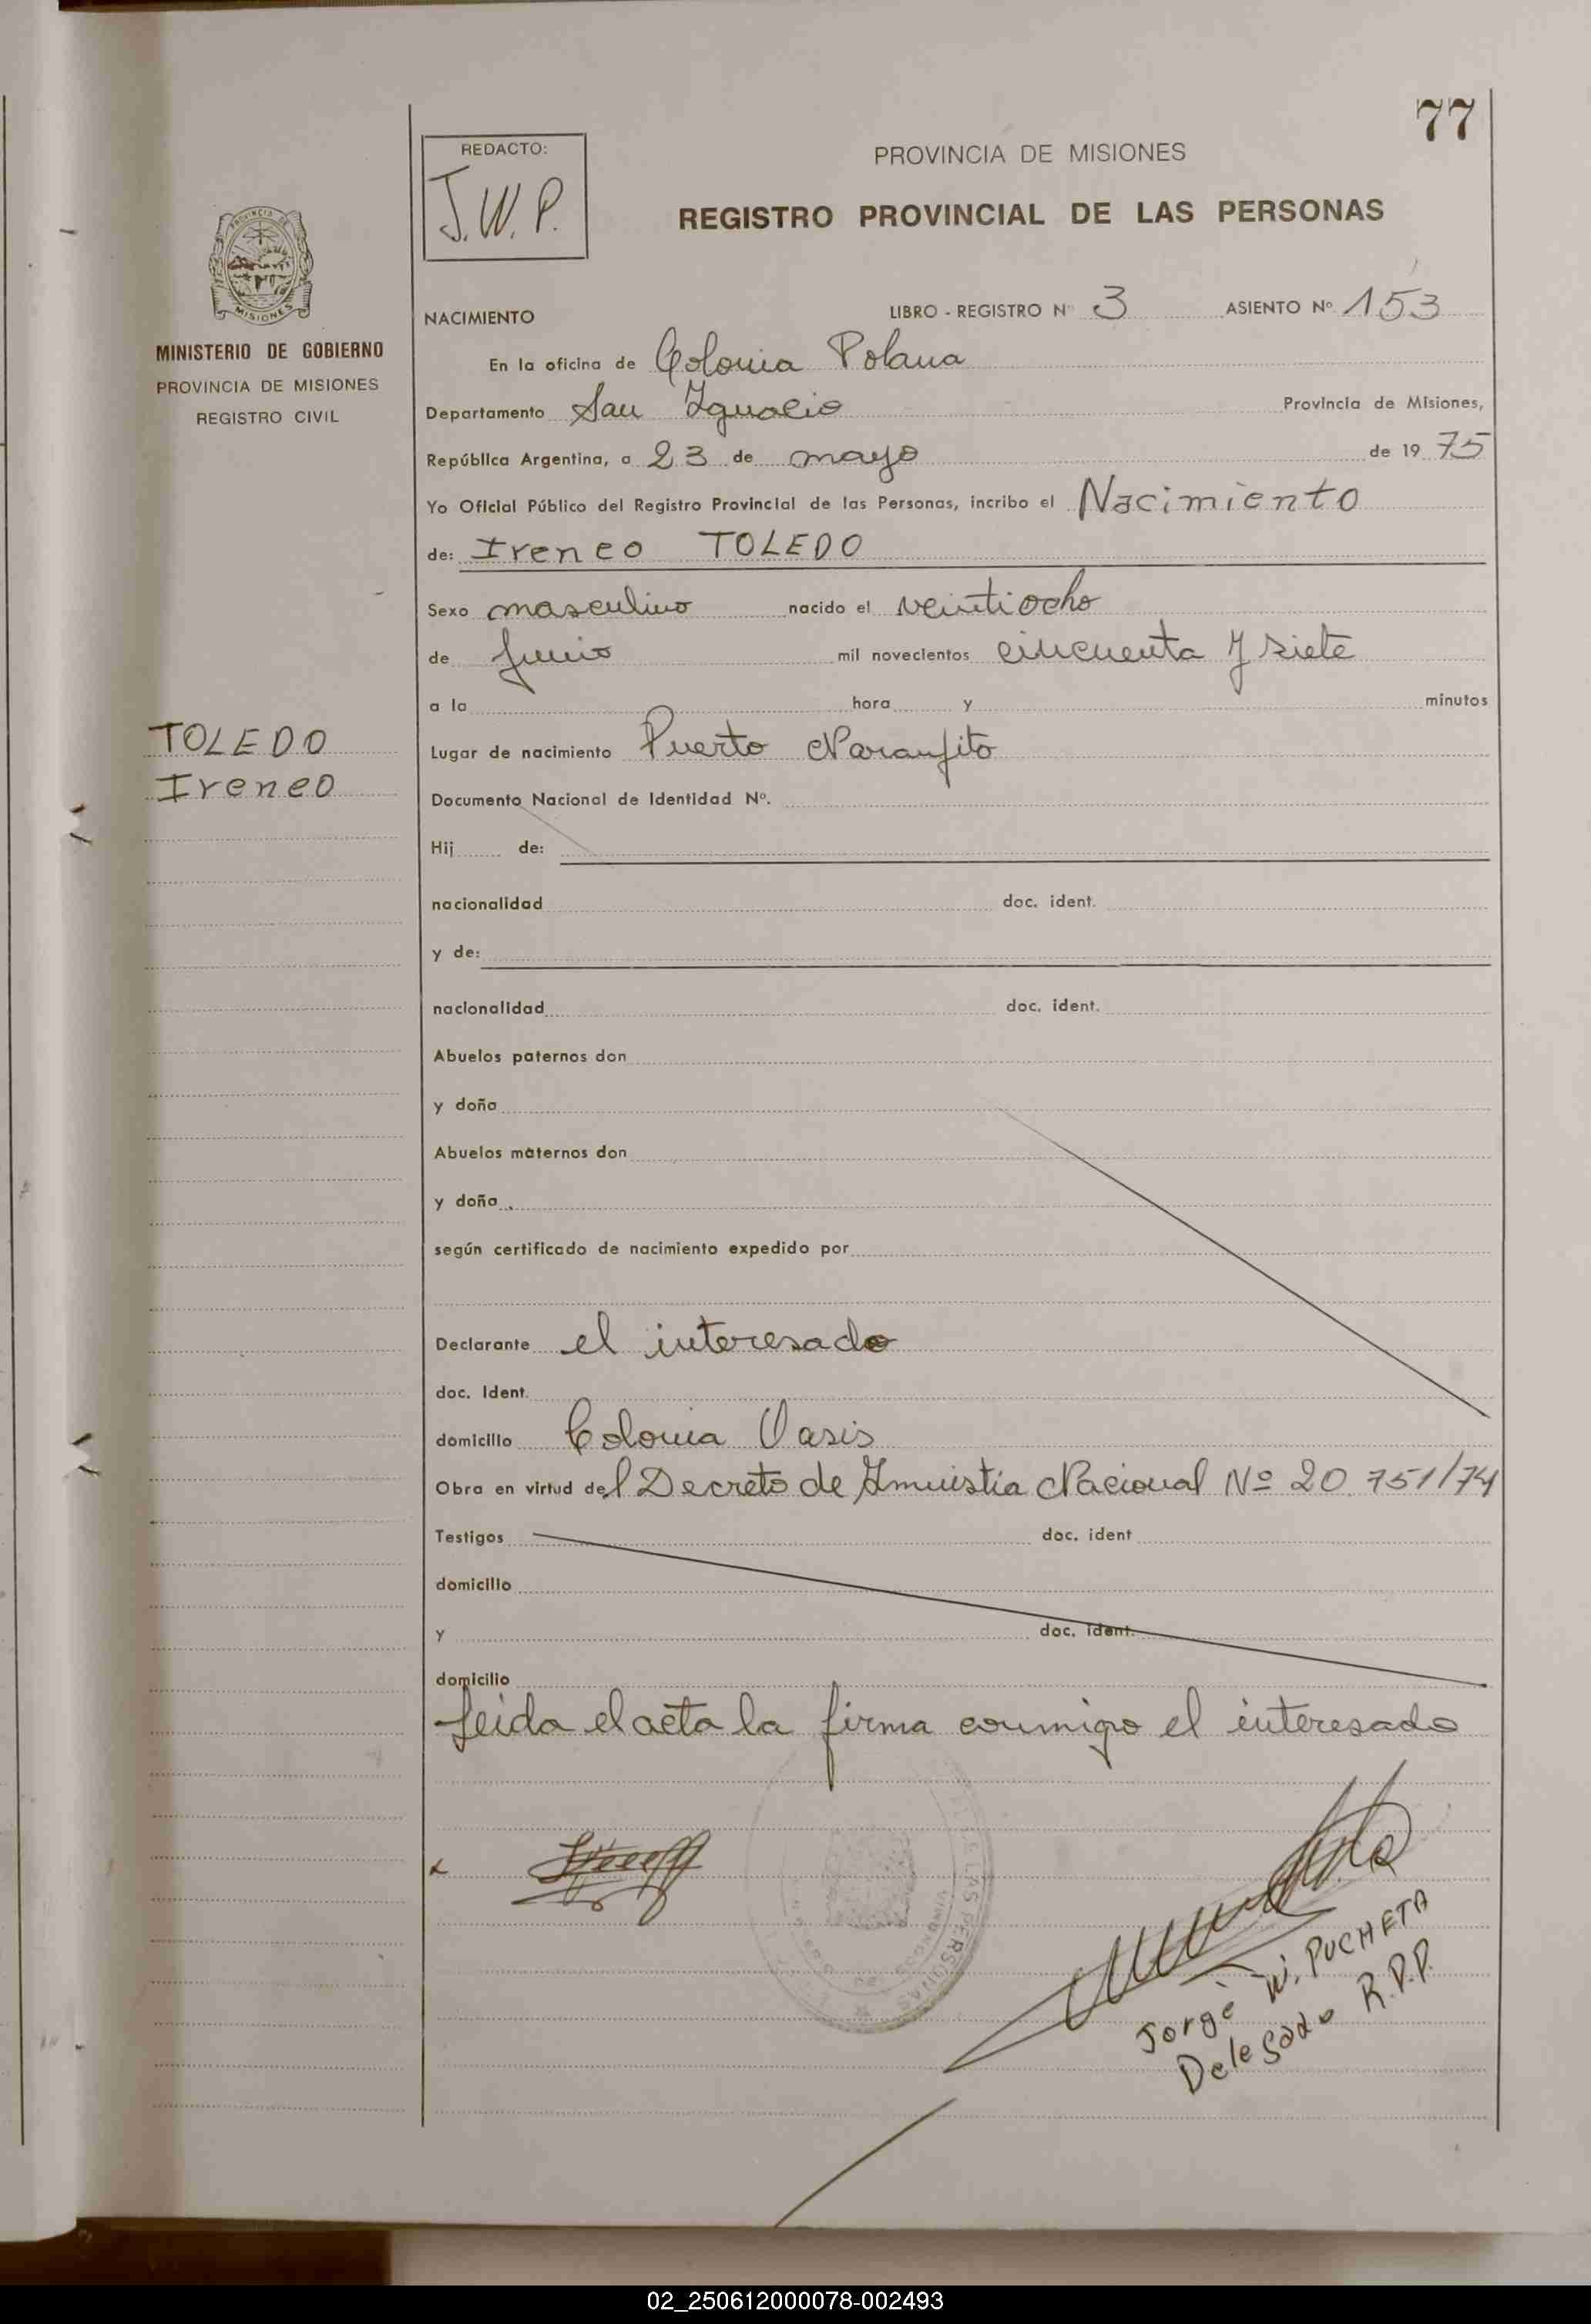 77
REDACTO:
J.W.P.
PROVINCIA DE MISIONES
REGISTRO PROVINCIAL DE LAS PERSONAS
MISIONES
MINISTERIO DE GOBIERNO
PROVINCIA DE MISIONES
REGISTRO CIVIL
TOLEDO
Ireneo
NACIMIENTO LIBRO - REGISTRO N° 3 ASIENTO Nº 153
En la oficina de Colonia Polana
Departamento San Ignacio Provincia de Misiones,
República Argentina, a 23 de mayo de 19 75
Yo Oficial Público del Registro Provincial de las Personas, incribo el Nacimiento
de: Ireneo TOLEDO
Sexo masculino nacido el veintiocho
de Junio mil novecientos cincuenta y siete
a la hora y minutos
Lugar de nacimiento Puerto Naranjito
Documento Nacional de Identidad Nº.
Hij de:
nacionalidad doc. ident.
y de:
nacionalidad doc. ident.
Abuelos paternos don
y doña
Abuelos maternos don
y doña
según certificado de nacimiento expedido por
Declarante el interesado
doc. Ident.
domicilio Colonia Oasis
Obra en virtud del Decreto de Amnistia Nacional Nº 20.751/74
Testigos doc. ident
domicilio
y doc. ident.
domicilio
Leida el acta la firma conmigo el interesado
Jorge W. PUCHETA
Delegado R.P.P.
02_250612000078-002493